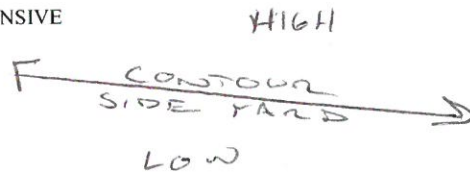 NSIVE
HIGH
CONTOUR
SIDE YARD
LOW